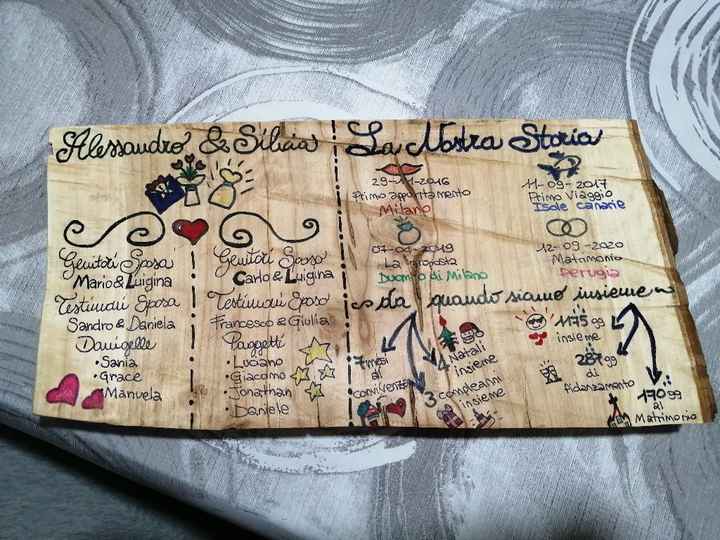 Alessandro & Silvia
Genitori Sposa
Mario & Luigina
Testimoni Sposa
Sandro & Daniela
Damigelle
• Sania
• Grace
• Manuela
Genitori Sposo
Carlo & Luigina
Testimoni Sposo
Francesco & Giulia
Paggetti
• Luciano
• Giacomo
• Jonathan
• Daniele
La Nostra Storia
29-11-2016
Primo appuntamento
Milano
11-09-2017
Primo Viaggio
Isole canarie
2019
La Proposta
Duomo di Milano
12-09-2020
Matrimonio
Perugia
da quando siamo insieme
7 mesi
di
convivenza
4 Natali
insieme
3 compleanni
insieme
1175 gg
insieme
287 gg
di
Fidanzamento
170 gg
al
Matrimonio